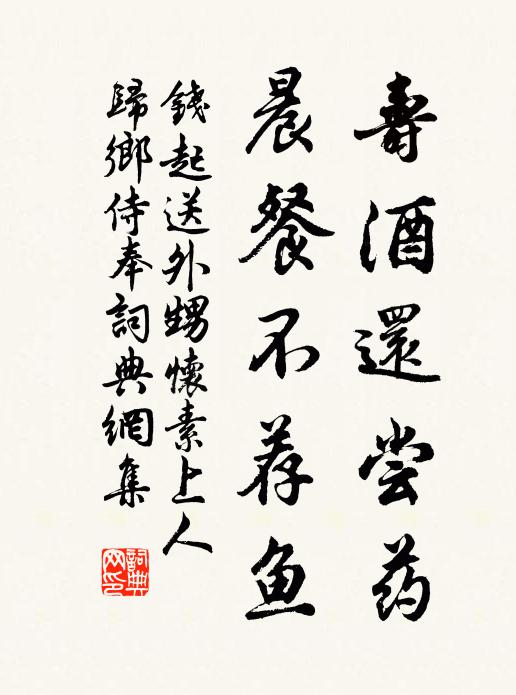 壽酒還尝药
晨餐不荐鱼
錢起送外甥懷素上人
歸鄉侍奉詞典網集
詞典网印